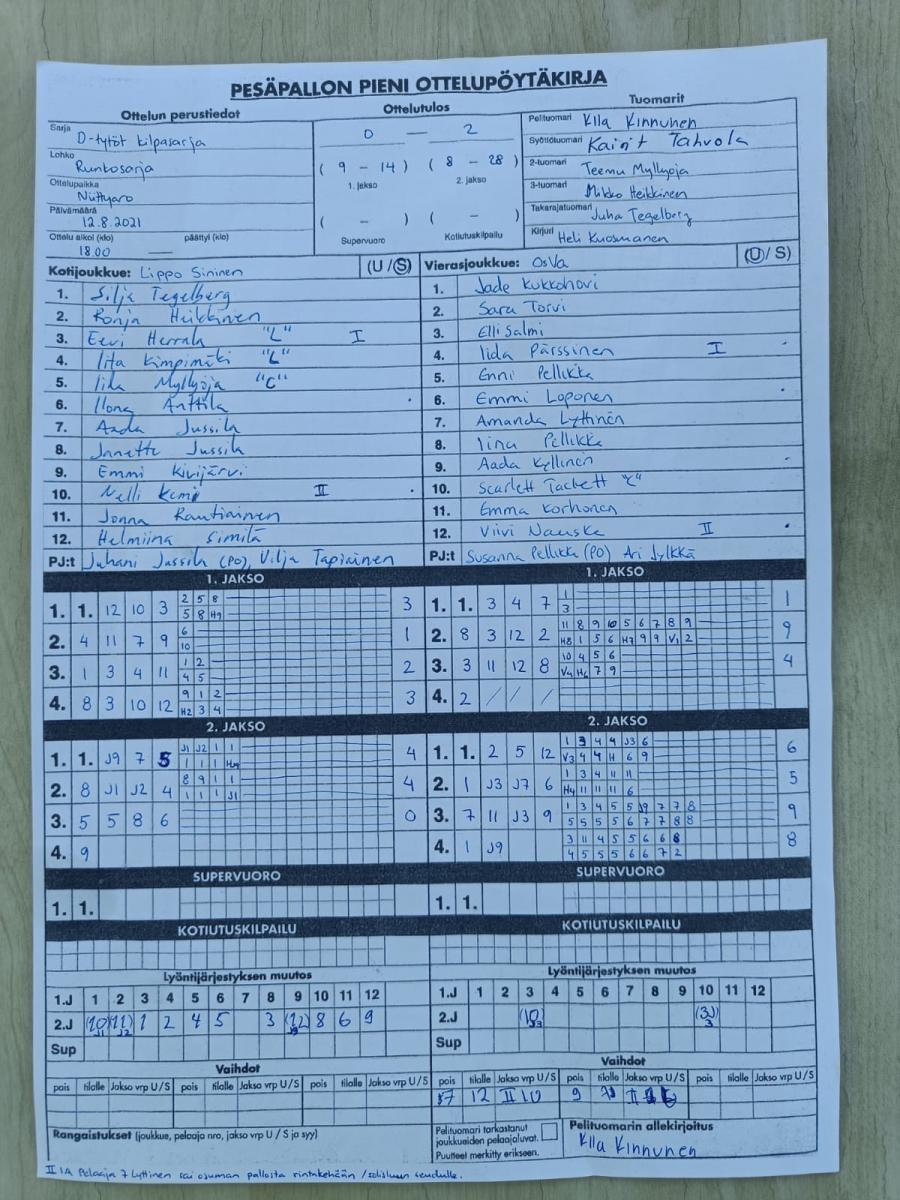 PESÄPALLON PIENI OTTELUPÖYTÄKIRJA
Ottelun perustiedot
Ottelutulos
Tuomarit
Sarja D-tytöt kilpasarja
Lohko Runkosarja
Ottelupaikka
Päivämäärä 12.8.2021
Ottelu alkoi (klo) 18.00 päättyi (klo) —
0 — 2
( 9 - 14 ) ( 8 - 28 )
1. jakso 2. jakso
( - ) ( - )
Supervuoro Kotiutuskilpailu
Pelituomari Kinnunen
Syöttötuomari Tahvola
2-tuomari Teemu Myllyoja
3-tuomari Mikko Heikkinen
Takarajatuomari Juha Tegelberg
Kirjuri Heli Kuosmanen
Kotijoukkue: Lippo Sininen (U / S)
1. Silja Tegelberg
2. Ronja Heikkinen
3. Eevi Herrala "L" I
4. Iita Kimpimäki "L"
5. Iida Myllyoja "C"
6. Ilona Anttila
7. Aada Jussila
8. Janette Jussila
9. Emmi Kivijärvi
10. Nelli Kemi II
11. Jonna Rautiainen
12. Helmiina Similä
PJ:t Juhani Jussila (PO), Vilja Tapiainen
Vierasjoukkue: OsVa (U / S)
1. Jade Kukkohovi
2. Sara Torvi
3. Elli Salmi
4. Iida Pärssinen I
5. Enni Pellikka
6. Emmi Loponen
7. Amanda Lyttinen
8. Iina Pellikka
9. Aada Kyllinen
10. Scarlett Tackett "C"
11. Emma Korhonen
12. Viivi Nauska II
PJ:t Susanna Pellikka (PO) Ari Jylkkä
1. JAKSO
1. 1. 12 10 3 3
2 5 8
5 8 H9
2. 4 11 7 9 1
6
10
3. 1 3 4 11 2
1 2
4 5
4. 8 3 10 12 3
9 1 2
H2 3 4
1. JAKSO
1. 1. 3 4 7 1
1
3
2. 8 3 12 2 9
11 8 9 10 5 6 7 8 9
H8 1 5 6 H7 9 9 V1 2
3. 3 11 12 8 4
10 4 5 6
V4 H6 7 9
4. 2 / / /
2. JAKSO
1. 1. J9 7 5 4
J1 J2 1 1
1 1 1 H4
2. 8 J1 J2 4 4
8 9 1 1
1 1 1 J1
3. 5 5 8 6 0
4. 9
2. JAKSO
1. 1. 2 5 12 6
1 3 4 4 J3 6
V3 4 4 H 6 9
2. 1 J3 J7 6 5
1 3 4 11 11
H4 11 11 11 6
3. 7 11 J3 9 9
1 3 4 5 5 J9 7 7 8
5 5 5 5 6 7 7 8 8
4. 1 J9 8
3 11 4 5 5 6 6 8
4 5 5 5 6 6 7 2
SUPERVUORO
1. 1.
SUPERVUORO
1. 1.
KOTIUTUSKILPAILU
KOTIUTUSKILPAILU
Lyöntijärjestyksen muutos
1.J 1 2 3 4 5 6 7 8 9 10 11 12
2.J (10) J1 (11) J2 1 2 4 5 3 (12) J9 8 6 9
Sup
Lyöntijärjestyksen muutos
1.J 1 2 3 4 5 6 7 8 9 10 11 12
2.J (10) J3
Sup
Vaihdot
pois tilalle Jakso vrp U / S pois tilalle Jakso vrp U / S pois tilalle Jakso vrp U / S
Vaihdot
pois tilalle Jakso vrp U / S pois tilalle Jakso vrp U / S pois tilalle Jakso vrp U / S
12 9
Rangaistukset (joukkue, pelaaja nro, jakso vrp U / S ja syy)
Pelituomari tarkastanut
joukkueiden pelaajaluvat.
Puutteet merkitty erikseen.
Pelituomarin allekirjoitus
Kinnunen
II 1A Pelaaja 7 Lyttinen sai osuman pallosta rintakehään / seudulle.